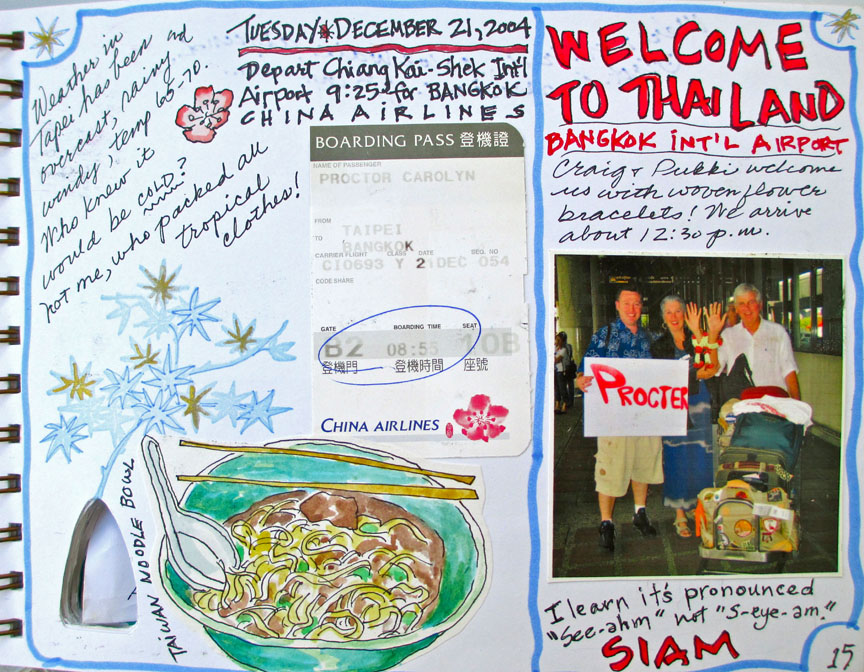 Weather in
Tapei has been
overcast, rainy and
windy, temp 65-70.
Who knew it
would be COLD?
not me, who packed all
tropical
clothes!
TUESDAY DECEMBER 21, 2004
Depart Chiang Kai-Shek Int'l
Airport 9:25 for BANGKOK
CHINA AIRLINES
BOARDING PASS 登機證
NAME OF PASSENGER
PROCTOR CAROLYN
FROM
TAIPEI
TO
BANGKOK
CARRIER FLIGHT CLASS DATE SEQ. NO
CI0693 Y 21DEC 054
CODE SHARE
GATE BOARDING TIME SEAT
B2 08:55 10B
登機門 登機時間 座號
CHINA AIRLINES
TAIWAN NOODLE BOWL
WELCOME
TO THAILAND
BANGKOK INT'L AIRPORT
Craig & Pukki welcome
us with woven flower
bracelets! We arrive
about 12:30 p.m.
PROCTER
I learn it's pronounced
"See-ahm" not "S-eye-am."
SIAM
15